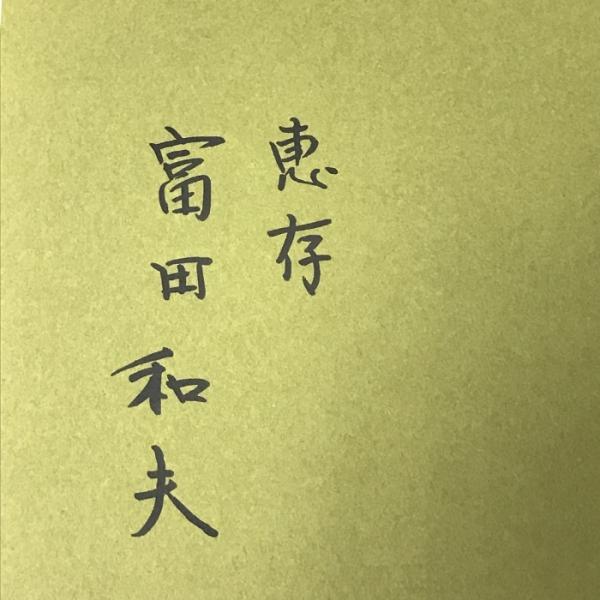 恵存
富田和夫